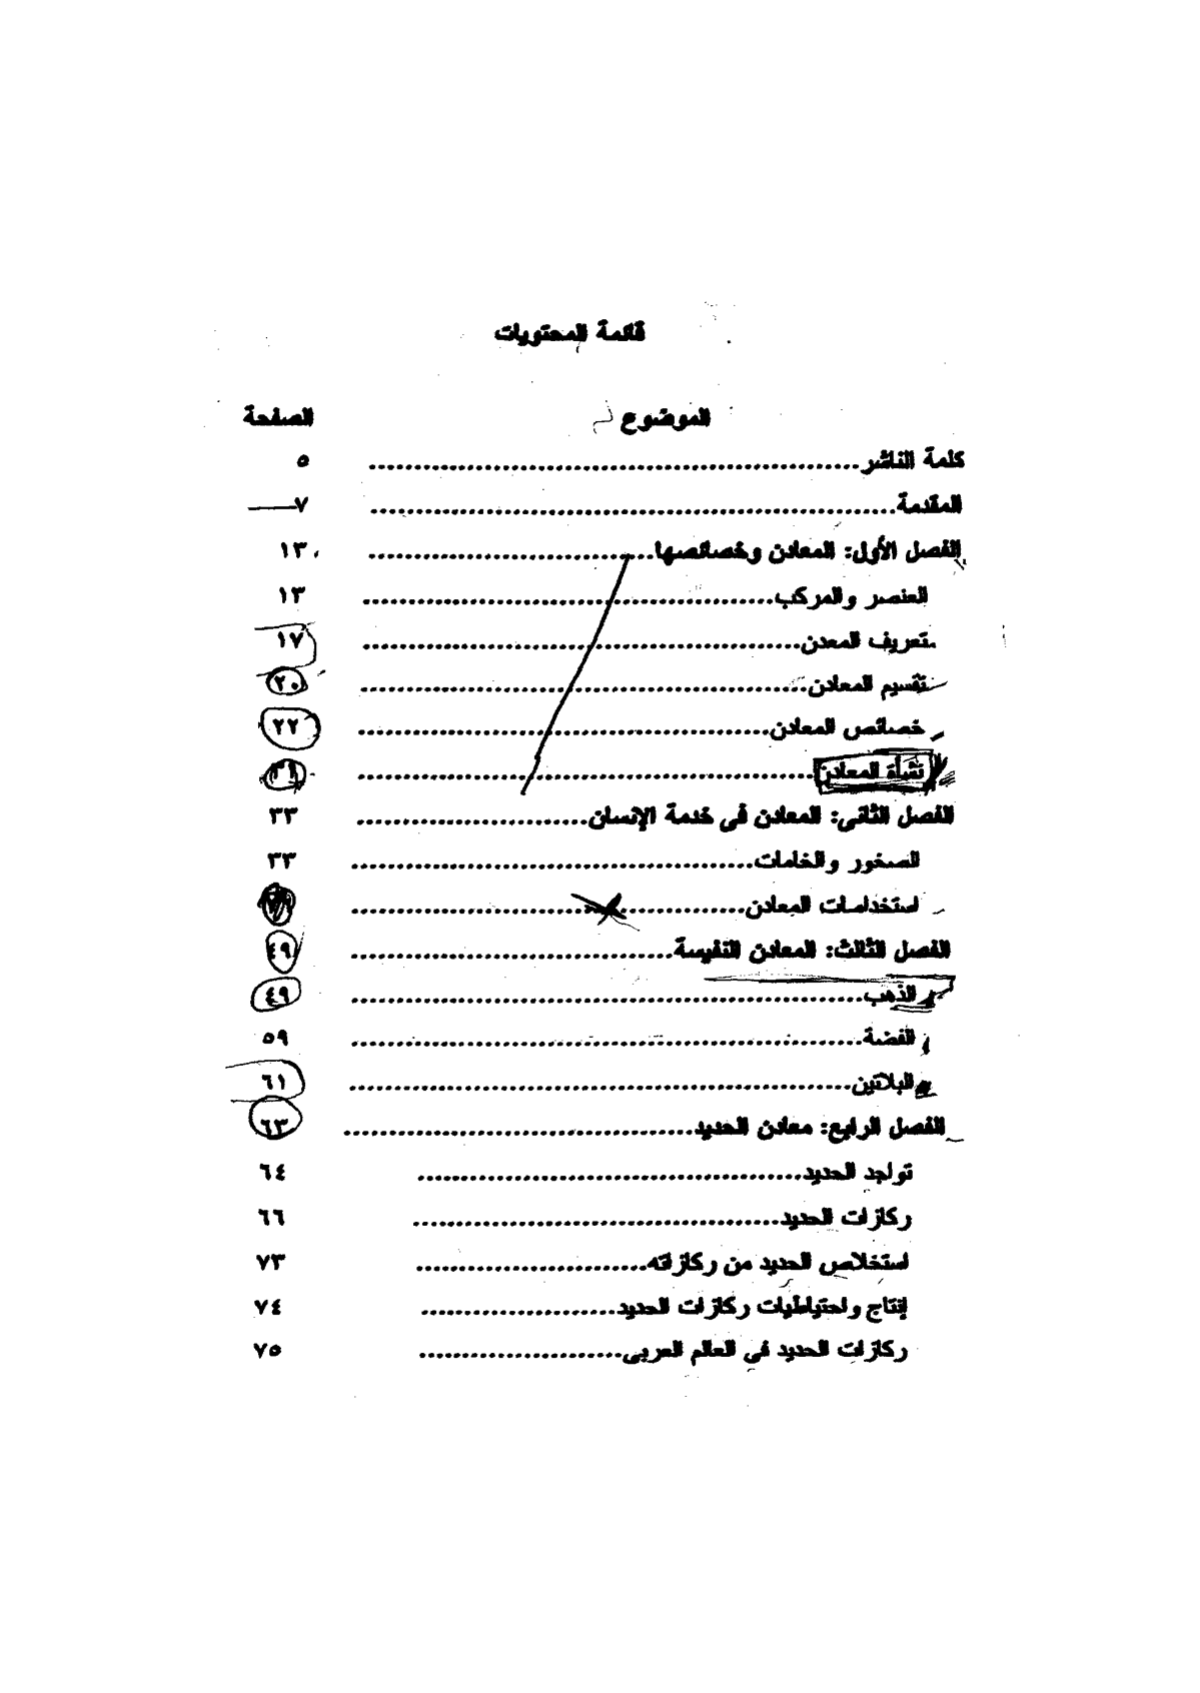 قائمة المحتويات
الموضوع الصفحة
كلمة الناشر ٥
المقدمة ٧
الفصل الأول: المعادن وخصائصها ١٣
العنصر والمركب ١٣
تعريف المعدن ١٧
تقسيم المعادن ٢٠
خصائص المعادن ٢٢
نشأة المعادن ٣١
الفصل الثانى: المعادن فى خدمة الإنسان ٣٣
الصخور والخامات ٣٣
استخدامات المعادن
الفصل الثالث: المعادن النفيسة ٤٩
الذهب ٤٩
الفضة ٥٩
البلاتين ٦١
الفصل الرابع: معادن الحديد ٦٣
تواجد الحديد ٦٤
ركازات الحديد ٦٦
استخلاص الحديد من ركازاته ٧٣
إنتاج واحتياطيات ركازات الحديد ٧٤
ركازات الحديد فى العالم العربى ٧٥